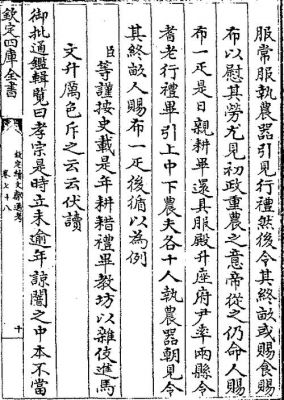 服常服執農器引見行禮然後令其終畝或賜食賜
布以慰其勞尤見初政重農之意帝從之仍命人賜
布一疋是日親耕畢還具服殿升座府尹率兩縣令
耆老行禮畢引上中下農夫各十人執農器朝見令
其終畝人賜布一疋後循以為例
臣等謹按史載是年耕耤禮畢教坊以雜伎進馬
文升厲色斥之云云伏讀
御批通鑑輯覽曰孝宗是時立未逾年諒闇之中本不當
欽定四庫全書
欽定續文獻通考
卷七十八
十